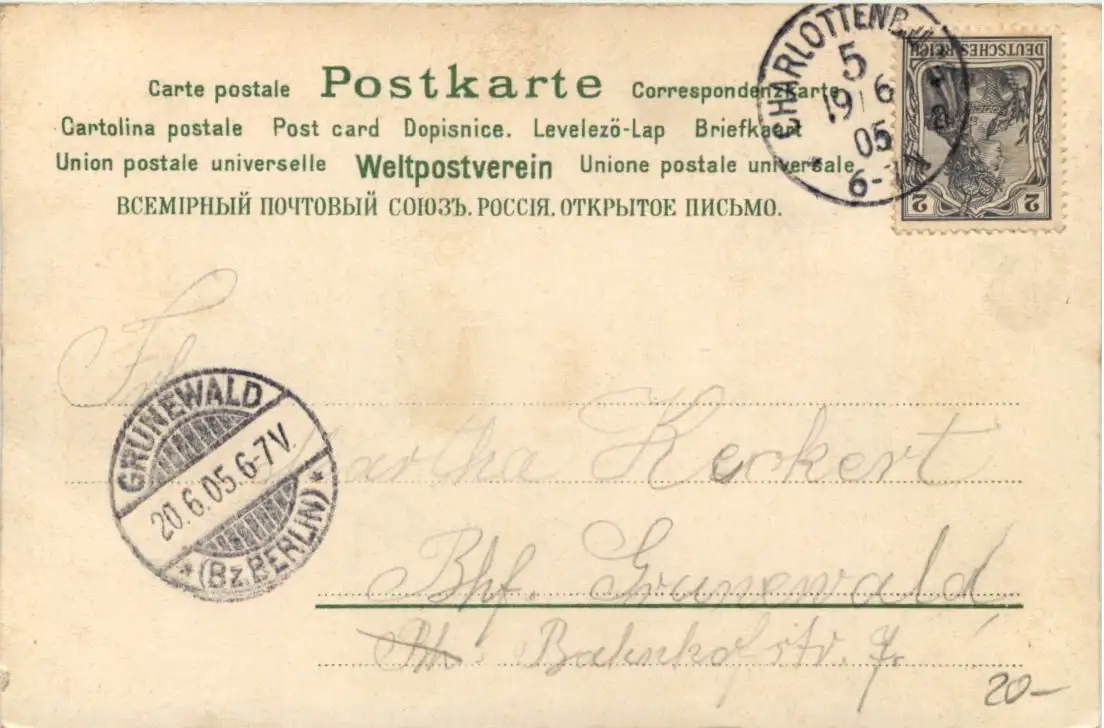 Carte postale Postkarte Correspondenzkarte
Cartolina postale Post card Dopisnice. Levelező-Lap Briefkaart
Union postale universelle Weltpostverein Unione postale universale
ВСЕМІРНЫЙ ПОЧТОВЫЙ СОЮЗЪ. РОССІЯ. ОТКРЫТОЕ ПИСЬМО.
CHARLOTTENBU
5
19 6
05
6-
DEUTSCHES REICH
2 2
Frl.
GRUNEWALD
20.6.05.6-7V.
*(Bz.BERLIN)*
artha Kerkert
Bhf. Grunewald,
Bahnhofstr. 7.
20-